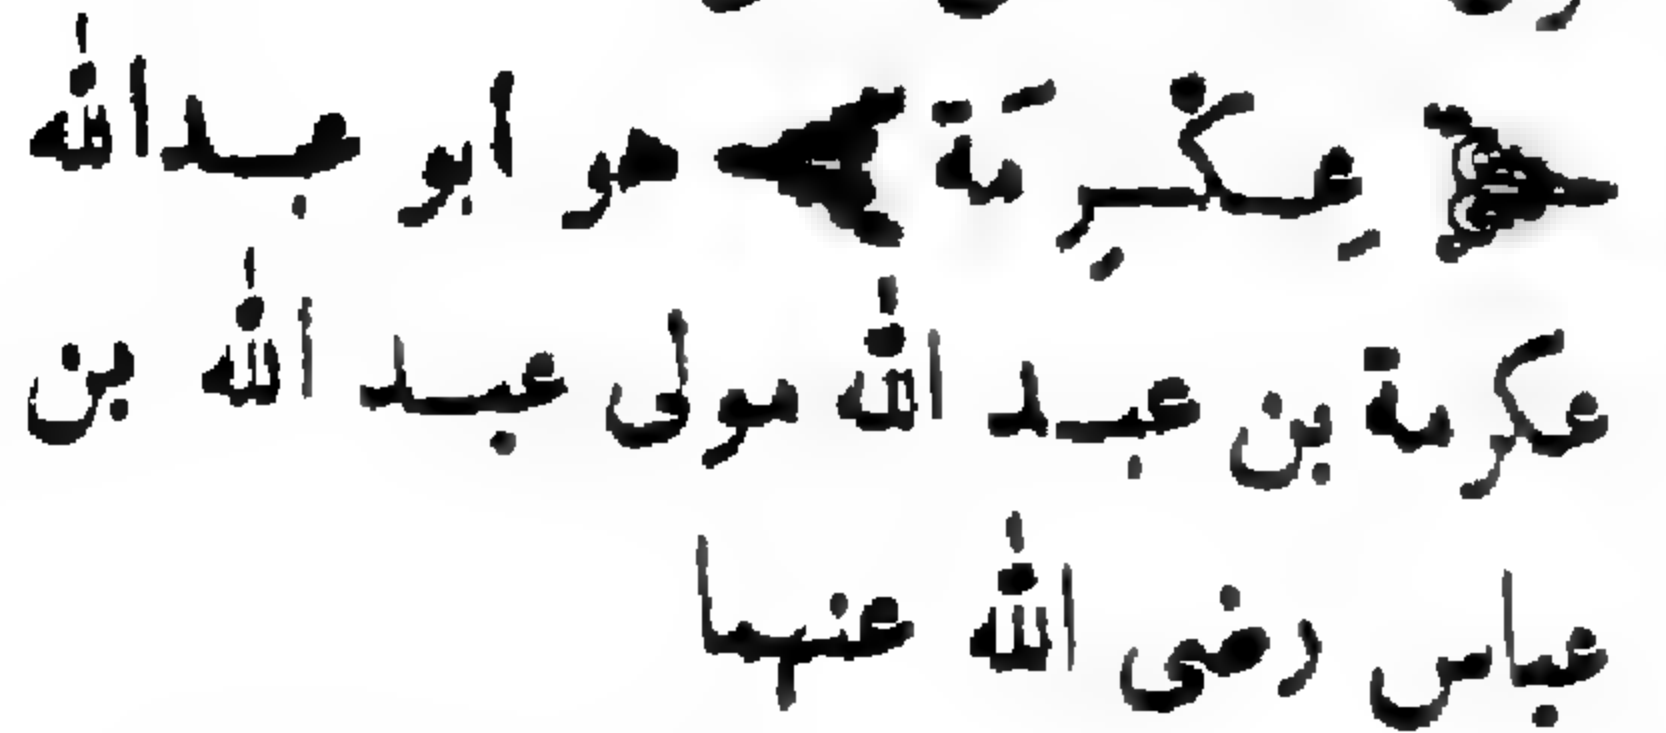 ﴿ عِكْرِمَة ﴾ هو ابو عبدالله
عكرمة بن عبد الله مولى عبد الله بن
عباس رضى الله عنهما